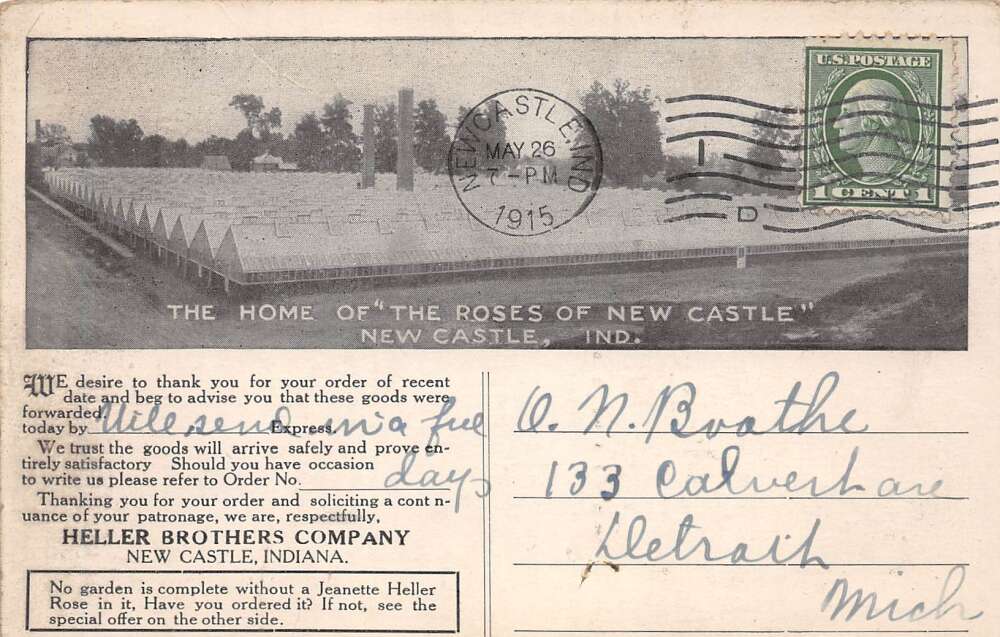 U.S. POSTAGE
1 CENT 1
NEWCASTLE, IND
MAY 26
7 - PM
1915
1
D
THE HOME OF "THE ROSES OF NEW CASTLE"
NEW CASTLE, IND.
WE desire to thank you for your order of recent
date and beg to advise you that these goods were
forwarded.
today by Will send in a few Express.
We trust the goods will arrive safely and prove en-
tirely satisfactory Should you have occasion
to write us please refer to Order No. days
Thanking you for your order and soliciting a cont n-
uance of your patronage, we are, respectfully,
HELLER BROTHERS COMPANY
NEW CASTLE, INDIANA.
No garden is complete without a Jeanette Heller
Rose in it, Have you ordered it? If not, see the
special offer on the other side.
O. N. Boothe
133 Calvert ave
Detroit
Mich